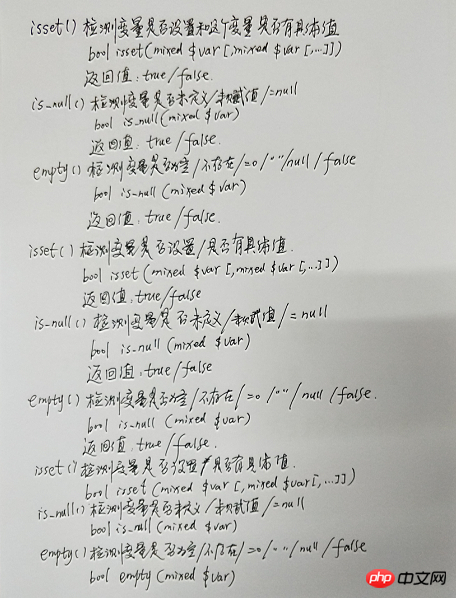 isset() 检测变量是否设置和这个变量是否有具体值
bool isset(mixed $var [,mixed $var [,...]])
返回值: true/false.
is_null() 检测变量是否未定义/未赋值/=null
bool is_null(mixed $var)
返回值: true/false.
empty() 检测变量是否为空/不存在/=0/""/null/false
bool is_null (mixed $var)
返回值: true/false.
isset() 检测变量是否设置/是否有具体值.
bool isset (mixed $var [,mixed $var [,...]])
返回值: true/false
is_null() 检测变量是否未定义/未赋值/=null
bool is_null (mixed $var)
返回值: true/false
empty() 检测变量是否为空/不存在/=0/""/null/false.
bool is_null (mixed $var)
返回值: true/false.
isset() 检测变量是否设置/是否有具体值.
bool isset (mixed $var [,mixed $var [,...]])
is_null() 检测变量是否未定义/未赋值/=null
bool is_null (mixed $var)
empty() 检测变量是否为空/不存在/=0/""/null/false
bool empty (mixed $var)
php 中文网